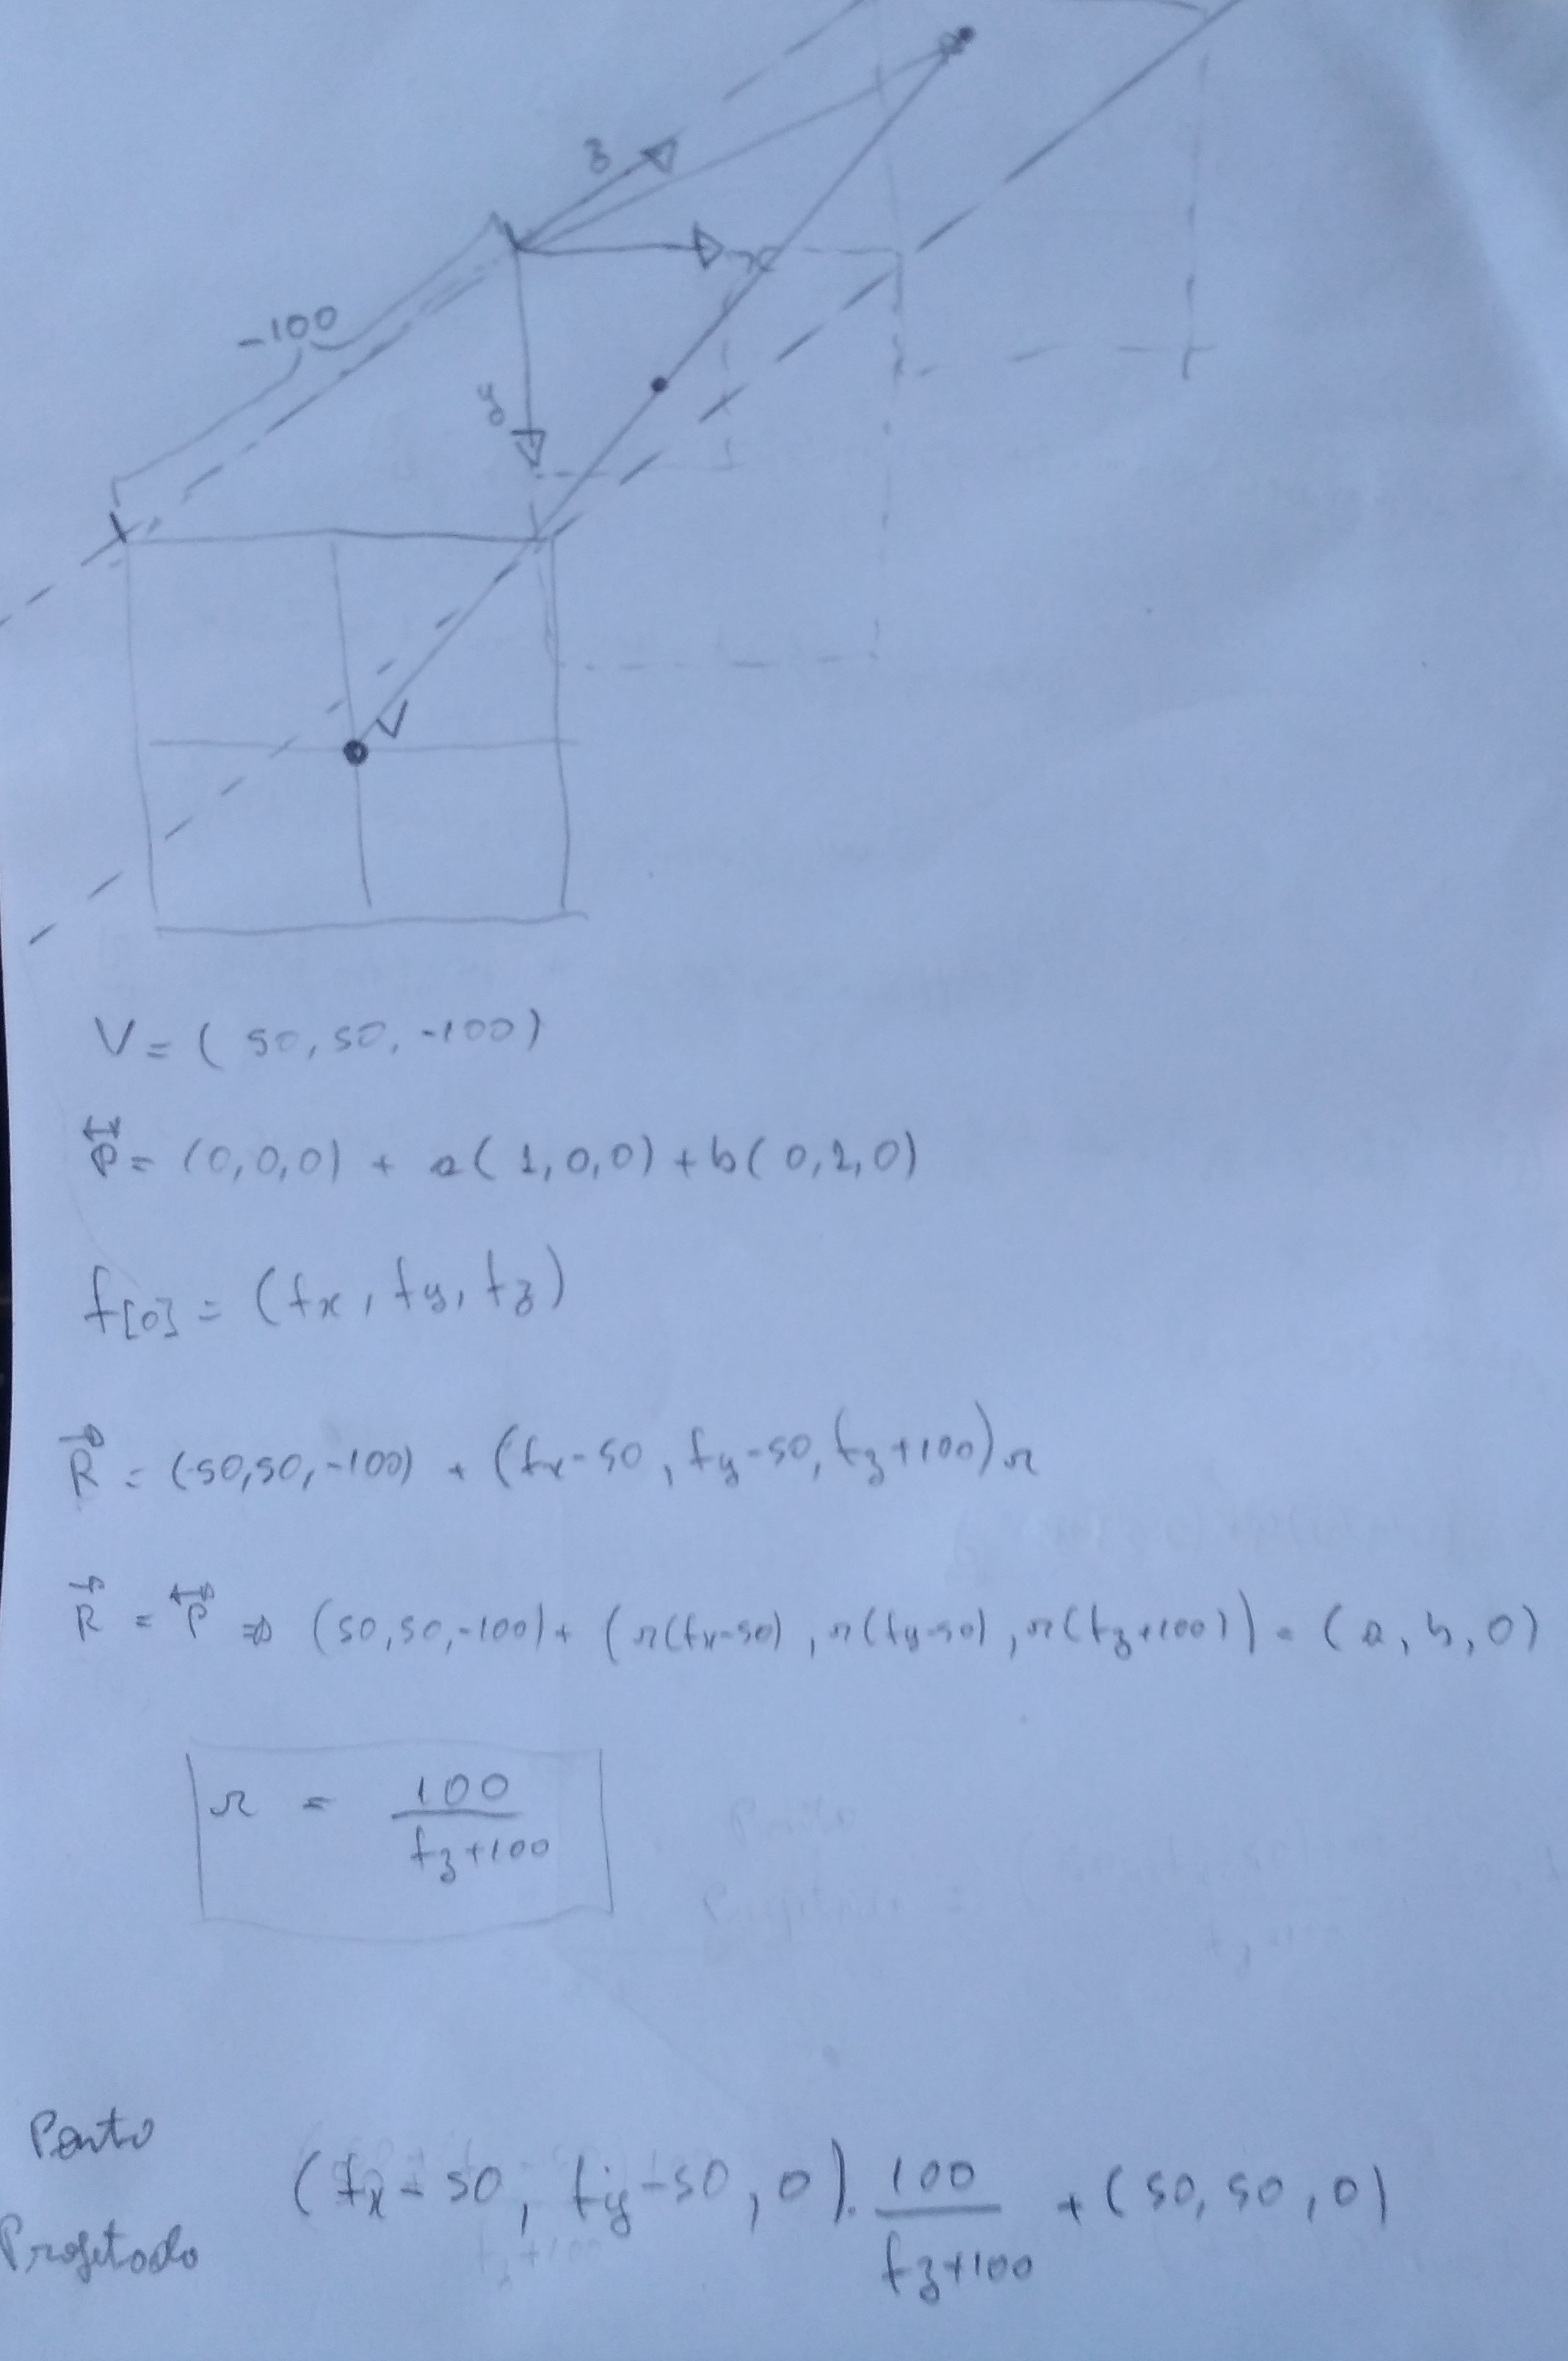 z
x
-100
y
V
V = (50, 50, -100)
P⃡ = (0,0,0) + a(1,0,0) + b(0,1,0)
f[0] = (fx, fy, fz)
R⃗ = (50,50,-100) + (fx-50, fy-50, fz+100)r
R⃗ = P⃡ ⇒ (50,50,-100) + (r(fx-50), r(fy-50), r(fz+100)) = (a, b, 0)
r = 100 / fz+100
Ponto
Projetado (fx-50, fy-50, 0) . 100 / fz+100 + (50, 50, 0)